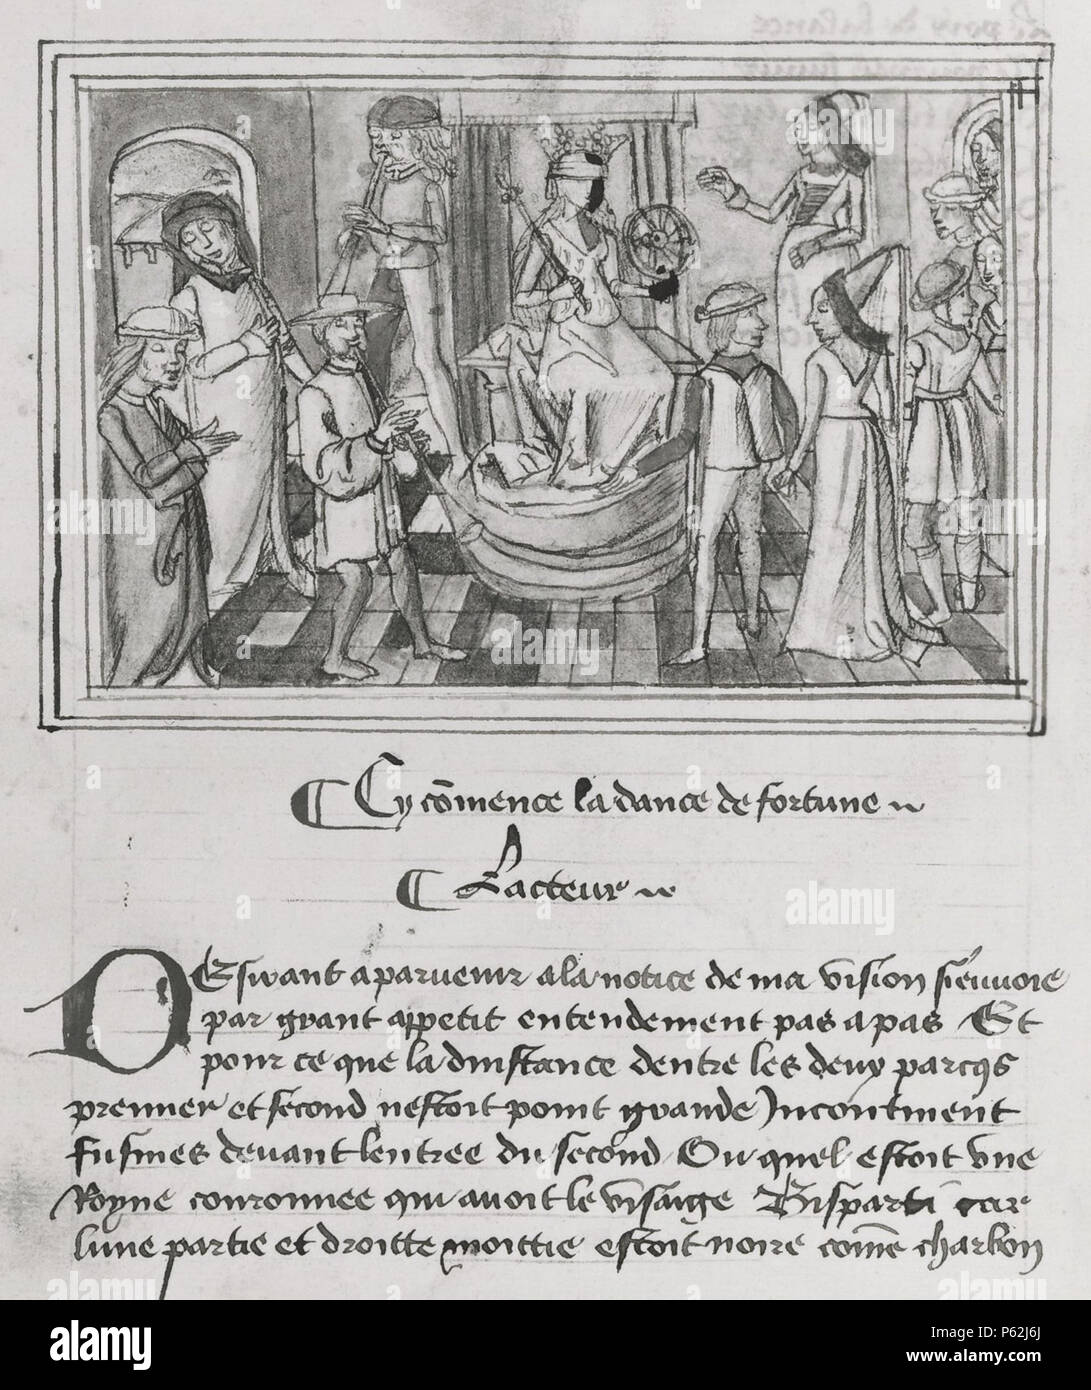 ¶ Cy cōmence la dance de fortune
¶ Lacteur
DEsirant aparvenir a la notice de ma vision s
par grant appetit entendement pas a pas Et
pour ce que la distance dentre les deux parcqs
premier et second nestoit point grande Incontinent
fusmes devant lentree du second Ou quel estoit vne
Royne couronnee qui auoit le visaige Bisparti car
lune partie et droitte moittie estoit noire come charbon
alamy
alamy
www.alamy.com
Image ID: P62J6J